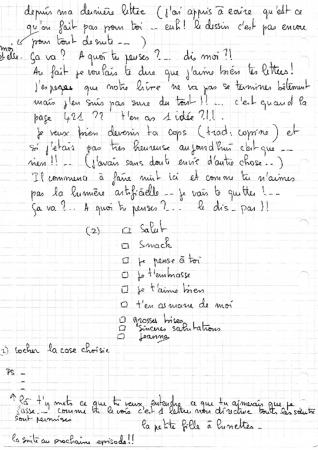 depuis ma dernière lettre (j'ai appris à écrire qu'est ce
qu'on fait pas pour toi -- euh! le dessin c'est pas encore
pour tout de suite --- )
moi et elle. Ça va ? A quoi tu penses ? -- dis moi ?!
Au fait je voulais te dire que j'aime bien tes lettres!
J'espère que notre livre ne va pas se terminer bêtement
mais j'en suis pas sure du tout !! --. c'est quand la
page 421 ?? t'en as 1 idée ?!!.
Je veux bien devenir ta cops (trad: copine) et
si j'étais pas très heureuse aujourd'hui c'était que ---
rien !! -- (j'avais sans doute envie d'autre chose --)
Il commence à faire nuit ici et comme tu n'aimes
pas la lumière artificielle -- je vais te quitter ! ---
Ça va ?.. A quoi tu penses ?... le dis-pas !!
(2) □ Salut
□ Smack
□ je pense à toi
□ je t'embrasse
□ je t'aime bien
□ t'en as marre de moi
□ grosses bises
□ sincères salutations
□ Jeanne
2) cocher la case choisie
PS --
--
--
↑ PS t'y mets ce que tu veux, ce que tu aimerais que je
comme te le vois c'est 1 lettre non directive toutes les
sont permises
la petite fille à lunettes --
la suite au prochaine épisode !!